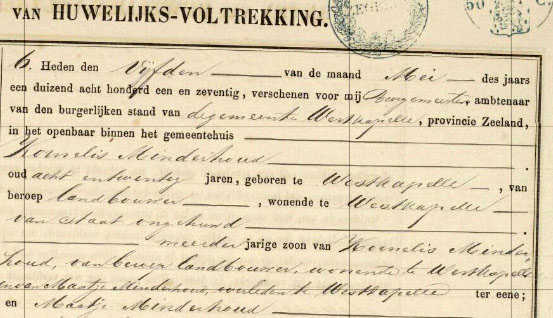 VAN HUWELIJKS-VOLTREKKING.
6. Heden den Vijfden van de maand Mei des jaars
een duizend acht honderd een en zeventig, verschenen voor mij Burgemeester, ambtenaar
van den burgerlijken stand van de gemeente Westkapelle, provincie Zeeland,
in het openbaar binnen het gemeentehuis
Kornelis Minderhoud
oud acht en twentig jaren, geboren te Westkapelle, van
beroep landbouwer, wonende te Westkapelle
van staat ongehuwd
meerder jarige zoon van Kornelis Minder
houd, van beroep landbouwer, wonende te Westkapelle
en van Maatje Minderhoud, overleden te Westkapelle ter eene;
en Maatje Minderhoud